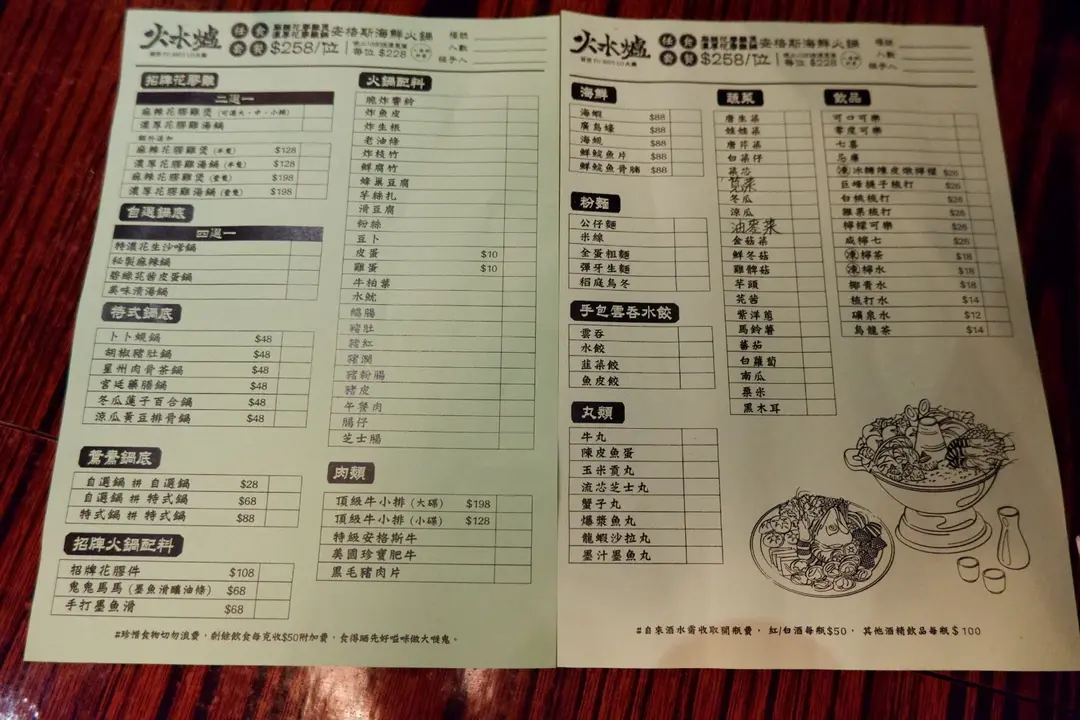 火水爐
任食套餐 安格斯海鮮火鍋
$258/位 每位 $228
檯號
人數
經手人
招牌花膠雞
二選一
麻辣花膠雞煲 (可選大、中、小辣)
濃厚花膠雞湯鍋
額外追加
麻辣花膠雞煲 (半隻) $128
濃厚花膠雞湯鍋 (半隻) $128
麻辣花膠雞煲 (壹隻) $198
濃厚花膠雞湯鍋 (壹隻) $198
自選鍋底
四選一
特濃花生沙嗲鍋
秘製麻辣鍋
碧綠花茜皮蛋鍋
美味清湯鍋
特式鍋底
卜卜蜆鍋 $48
胡椒豬肚鍋 $48
星州肉骨茶鍋 $48
宮廷藥膳鍋 $48
冬瓜蓮子百合鍋 $48
涼瓜黃豆排骨鍋 $48
鴛鴦鍋底
自選鍋 拼 自選鍋 $28
自選鍋 拼 特式鍋 $68
特式鍋 拼 特式鍋 $88
招牌火鍋配料
招牌花膠件 $108
鬼鬼馬馬 (墨魚滑釀油條) $68
手打墨魚滑 $68
火鍋配料
脆炸響鈴
炸魚皮
炸生根
老油條
炸枝竹
鮮腐竹
蜂巢豆腐
芋絲扎
滑豆腐
粉絲
豆卜
皮蛋 $10
雞蛋 $10
牛柏葉
水魷
鴨腸
豬肚
豬紅
豬潤
豬粉腸
豬皮
午餐肉
腸仔
芝士腸
肉類
頂級牛小排 (大碟) $198
頂級牛小排 (小碟) $128
特級安格斯牛
美國珍寶肥牛
黑毛豬肉片
#珍惜食物切勿浪費，剩餘飲食每克收$50附加費，食得晒先好嗌咪做大嘥鬼。
火水爐
任食套餐 安格斯海鮮火鍋
$258/位 每位 $228
檯號
人數
經手人
海鮮
海蝦 $88
廣島蠔 $88
海蜆 $88
鮮鯇魚片 $88
鮮鯇魚骨腩 $88
粉麵
公仔麵
米線
全蛋粗麵
彈牙生麵
稻庭烏冬
手包雲吞水餃
雲吞
水餃
韮菜餃
魚皮餃
丸類
牛丸
陳皮魚蛋
玉米貢丸
流芯芝士丸
蟹子丸
爆漿魚丸
龍蝦沙拉丸
墨汁墨魚丸
蔬菜
唐生菜
娃娃菜
唐芹菜
白菜仔
菜芯
莧菜
冬瓜
涼瓜
油麥菜
金菇菜
鮮冬菇
雞髀菇
芋頭
花茜
紫洋蔥
馬鈴薯
蕃茄
白蘿蔔
南瓜
粟米
黑木耳
飲品
可口可樂
零度可樂
七喜
忌廉
凍冰糖陳皮燉檸檬 $26
巨峰提子梳打 $26
白桃梳打 $26
雜果梳打 $26
檸檬可樂 $26
咸檸七 $26
凍檸茶 $18
凍檸水 $18
椰青水 $18
梳打水 $14
礦泉水 $12
烏龍茶 $14
#自來酒水需收取開瓶費， 紅/白酒每瓶$50， 其他酒精飲品每瓶$100